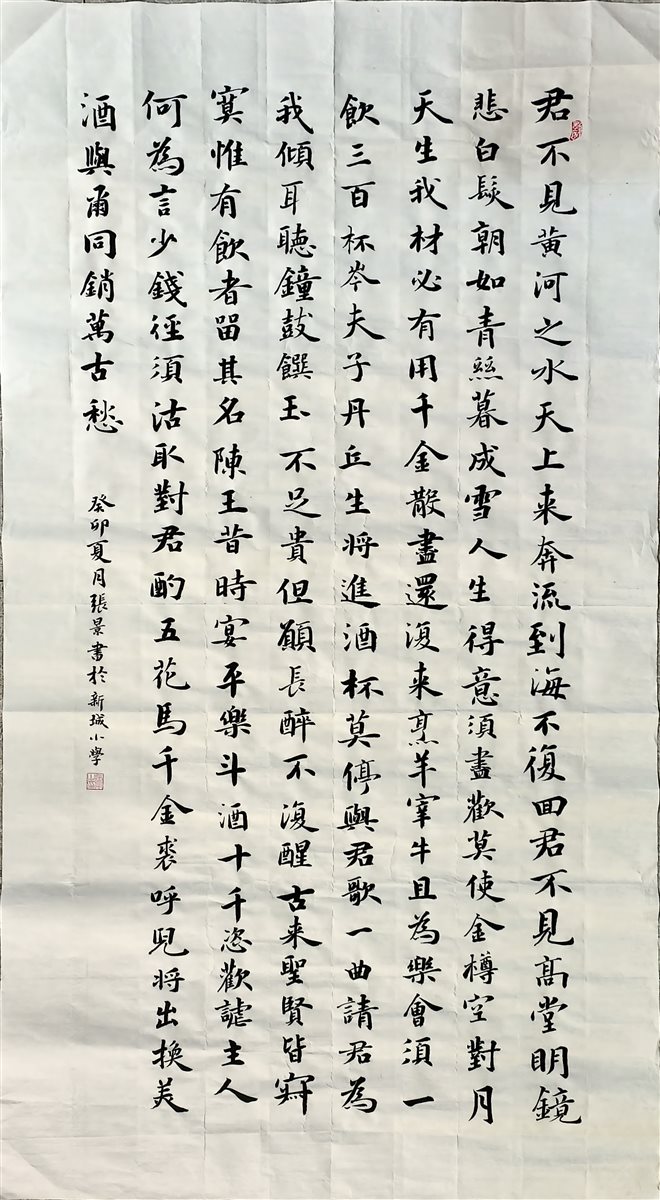 君不見黃河之水天上来奔流到海不復回君不見高堂明鏡
悲白髮朝如青絲暮成雪人生得意須盡歡莫使金樽空對月
天生我材必有用千金散盡還復来烹羊宰牛且為樂會須一
飲三百杯岑夫子丹丘生将進酒杯莫停與君歌一曲請君為
我傾耳聽鐘鼓饌玉不足貴但願長醉不復醒古来聖賢皆寂
寞惟有飲者留其名陳王昔時宴平樂斗酒十千恣歡謔主人
何為言少錢徑須沽取對君酌五花馬千金裘呼兒将出換美
酒與爾同銷萬古愁
癸卯夏月張景書於新城小學